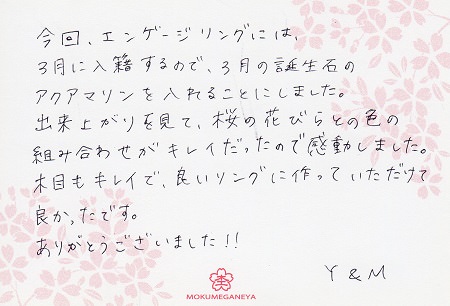 今回、エンゲージリングには、
3月に入籍するので、3月の誕生石の
アクアマリンを入れることにしました。
出来上がりを見て、桜の花びらとの色の
組み合わせがキレイだったので感動しました。
木目もキレイで、良いリングに作っていただけて
良かったです。
ありがとうございました!!
Y & M
MOKUMEGANEYA